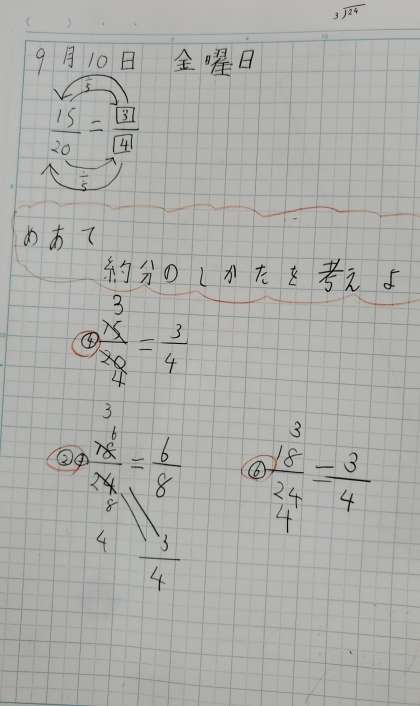 3√24
9月10日 金曜日
÷5
15/20 = 3/4
÷5
めあて
約分のしかたを考えよ
3
④ 15/20 = 3/4
4
3
6
② 18/24 = 6/8
8
4 3/4
3
⑥ 18/24 = 3/4
4